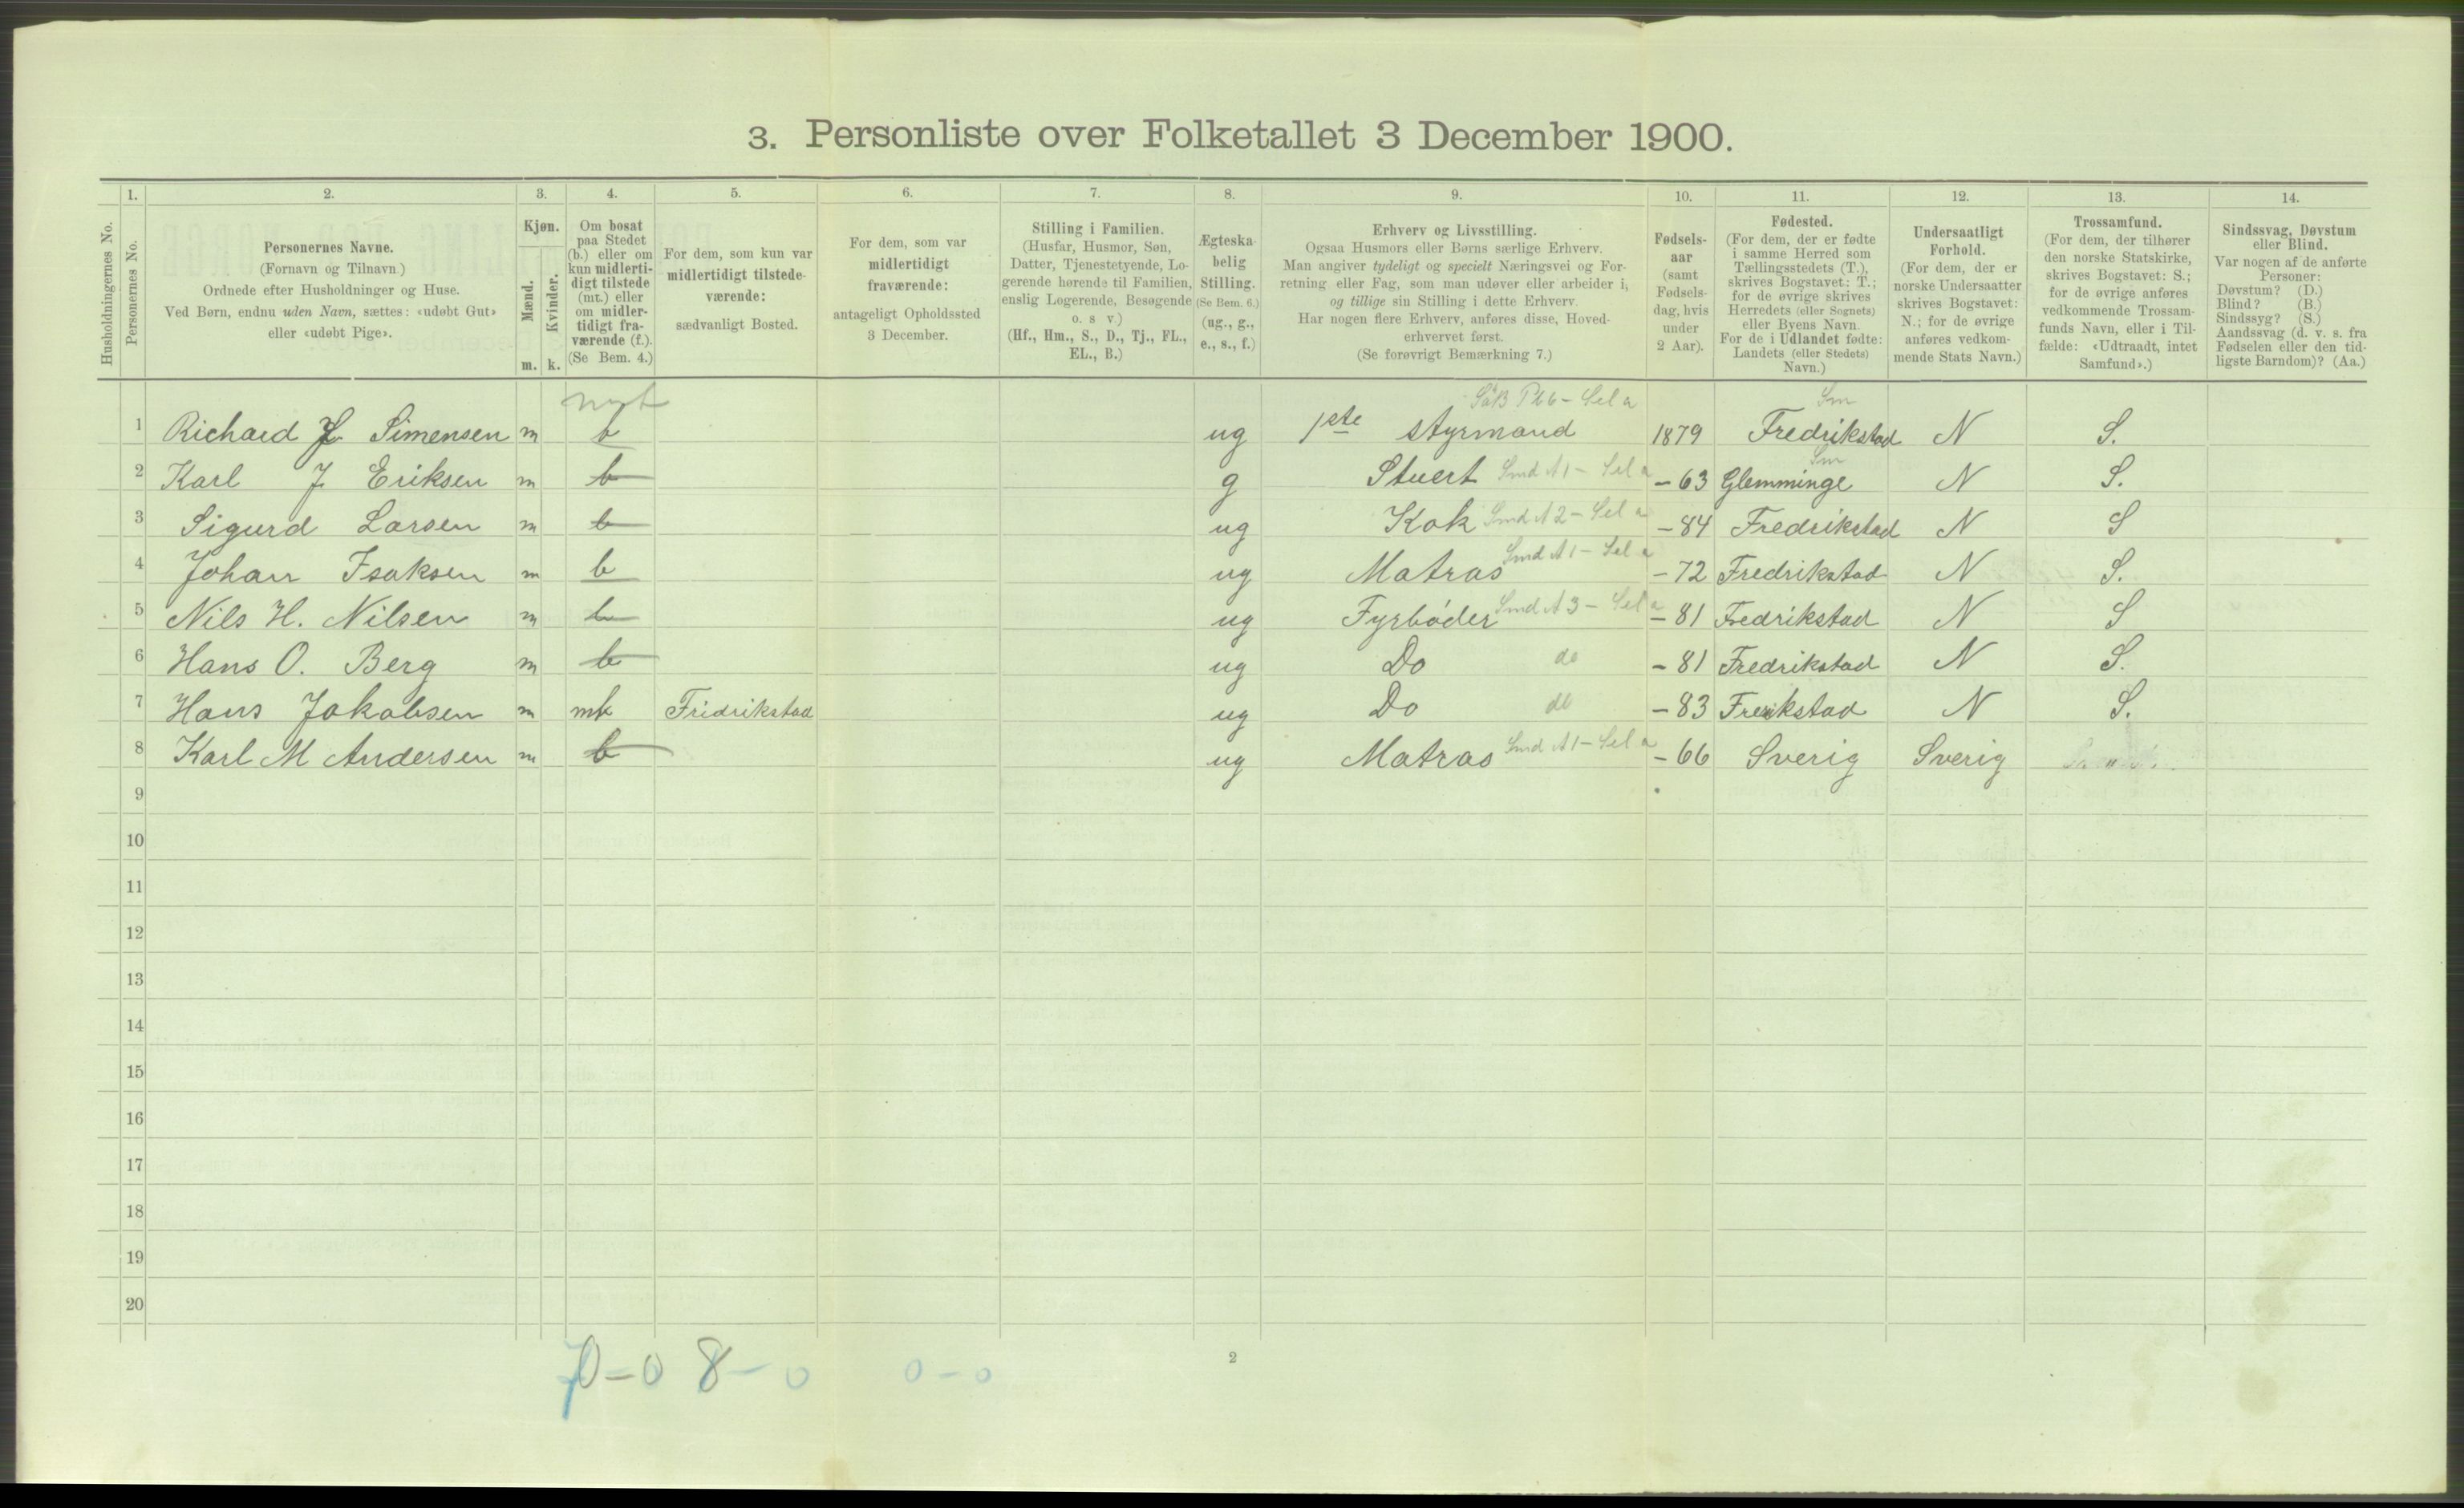 3. Personliste over Folketallet 3 December 1900.
1. 2. 3. 4. 5. 6. 7. 8. 9. 10. 11. 12. 13. 14.
Husholdningernes No.
Personernes No.
Personernes Navne.
(Fornavn og Tilnavn.)
Ordnede efter Husholdninger og Huse.
Ved Børn, endnu uden Navn, sættes: «udøbt Gut»
eller «udøbt Pige».
Kjøn.
Mænd.
Kvinder.
m. k.
Om bosat
paa Stedet
(b.) eller om
kun midlerti-
digt tilstede
(mt.) eller
om midler-
tidigt fra-
værende (f.).
(Se Bem. 4.)
For dem, som kun var
midlertidigt tilstede-
værende:
sædvanligt Bosted.
For dem, som var
midlertidigt
fraværende:
antageligt Opholdssted
3 December.
Stilling i Familien.
(Husfar, Husmor, Søn,
Datter, Tjenestetyende, Lo-
gerende hørende til Familien,
enslig Logerende, Besøgende
o. s v.)
(Hf., Hm., S., D., Tj., FL.,
EL., B.)
Ægteska-
belig
Stilling.
(Se Bem. 6.)
(ug., g.,
e., s., f.)
Erhverv og Livsstilling.
Ogsaa Husmors eller Børns særlige Erhverv.
Man angiver tydeligt og specielt Næringsvei og For-
retning eller Fag, som man udøver eller arbeider i,
og tillige sin Stilling i dette Erhverv.
Har nogen flere Erhverv, anføres disse, Hoved-
erhvervet først.
(Se forøvrigt Bemærkning 7.)
Fødsels-
aar
(samt
Fødsels-
dag, hvis
under
2 Aar).
Fødested.
(For dem, der er fødte
i samme Herred som
Tællingsstedets (T.),
skrives Bogstavet: T.;
for de øvrige skrives
Herredets (eller Sognets)
eller Byens Navn.
For de i Udlandet fødte:
Landets (eller Stedets)
Navn.)
Undersaatligt
Forhold.
(For dem, der er
norske Undersaatter
skrives Bogstavet:
N.; for de øvrige
anføres vedkom-
mende Stats Navn.)
Trossamfund.
(For dem, der tilhører
den norske Statskirke,
skrives Bogstavet: S.;
for de øvrige anføres
vedkommende Trossam-
funds Navn, eller i Til-
fælde: «Udtraadt, intet
Samfund».)
Sindssvag, Døvstum
eller Blind.
Var nogen af de anførte
Personer:
Døvstum? (D.)
Blind? (B.)
Sindssyg? (S.)
Aandssvag (d. v. s. fra
Fødselen eller den tid-
ligste Barndom)? (Aa.)
1 Richard J. Simensen m b ug 1ste styrmand 1879 Fredrikstad N S.
2 Karl J Eriksen m b g Stuert Smd A1 - Sel a - 63 Glemminge N S.
3 Sigurd Larsen m b ug Kok Smd A2 - Sel a - 84 Fredrikstad N S
4 Johan Isaksen m b ug Matros Smd A1 - Sel a - 72 Fredrikstad N S.
5 Nils H. Nilsen m b ug Fyrbøder Smd A3 - Sel a - 81 Fredrikstad N S
6 Hans O. Berg m b ug Do do - 81 Fredrikstad N S.
7 Hans Jakobsen m mt Fridrikstad ug Do do - 83 Frerikstad N S.
8 Karl M Andersen m b ug Matros Smd A1 - Sel a - 66 Sverig Sverig
9
10
11
12
13
14
15
16
17
18
19
20
0 - 0 8 - 0 0 - 0
2